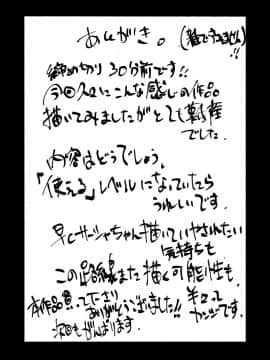 あとがき。(雑ですみません)!!
締め切り30分前です!!
今回久々にこんな感じの作品
描いてみましたがとても新鮮
でした。
内容はどうでしょう、
「使える」レベルになっていたら
うれしいです。
早くサーシャちゃん描いていやされたい
気持ちも
この路線また描く可能性も
本作品買って下さり
ありがとうございました!!
次回もがんばります。
です。